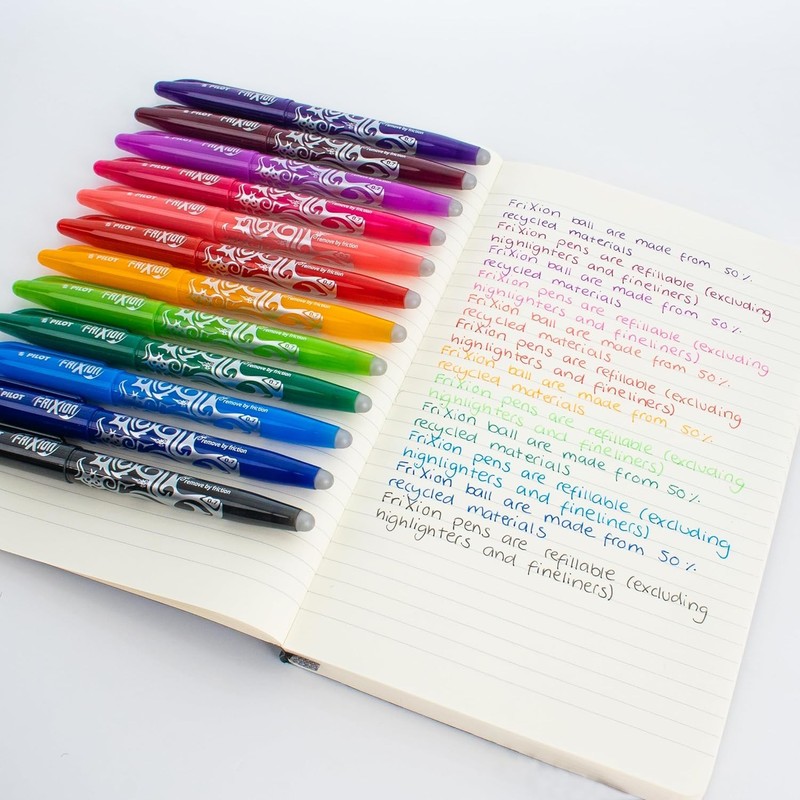 PILOT FRIXION remove by friction
PILOT FRIXION 0.7
PILOT FRIXION 0.7
PILOT FRIXION remove by friction
PILOT FRIXION remove by friction
PILOT FRIXION remove by friction
PILOT FRIXION
PILOT FRIXION 0.7
PILOT FRIXION remove by friction
PILOT FRIXION 0.7
PILOT FRIXION 0.7 remove by friction
FRIXION remove by friction
FriXion ball are made from 50%.
recycled materials
FriXion pens are refillable (excluding
highlighters and fineliners)
FriXion ball are made from 50%.
recycled materials
FriXion pens are refillable (excluding
highlighters and fineliners)
FriXion ball are made from 50%.
recycled materials
FriXion pens are refillable (excluding
highlighters and fineliners)
FriXion ball are made from 50%.
recycled materials
FriXion pens are refillable (excluding
highlighters and fineliners)
FriXion ball are made from 50%.
recycled materials
FriXion pens are refillable (excluding
highlighters and fineliners)
FriXion ball are made from 50%.
recycled materials
FriXion pens are refillable (excluding
highlighters and fineliners)